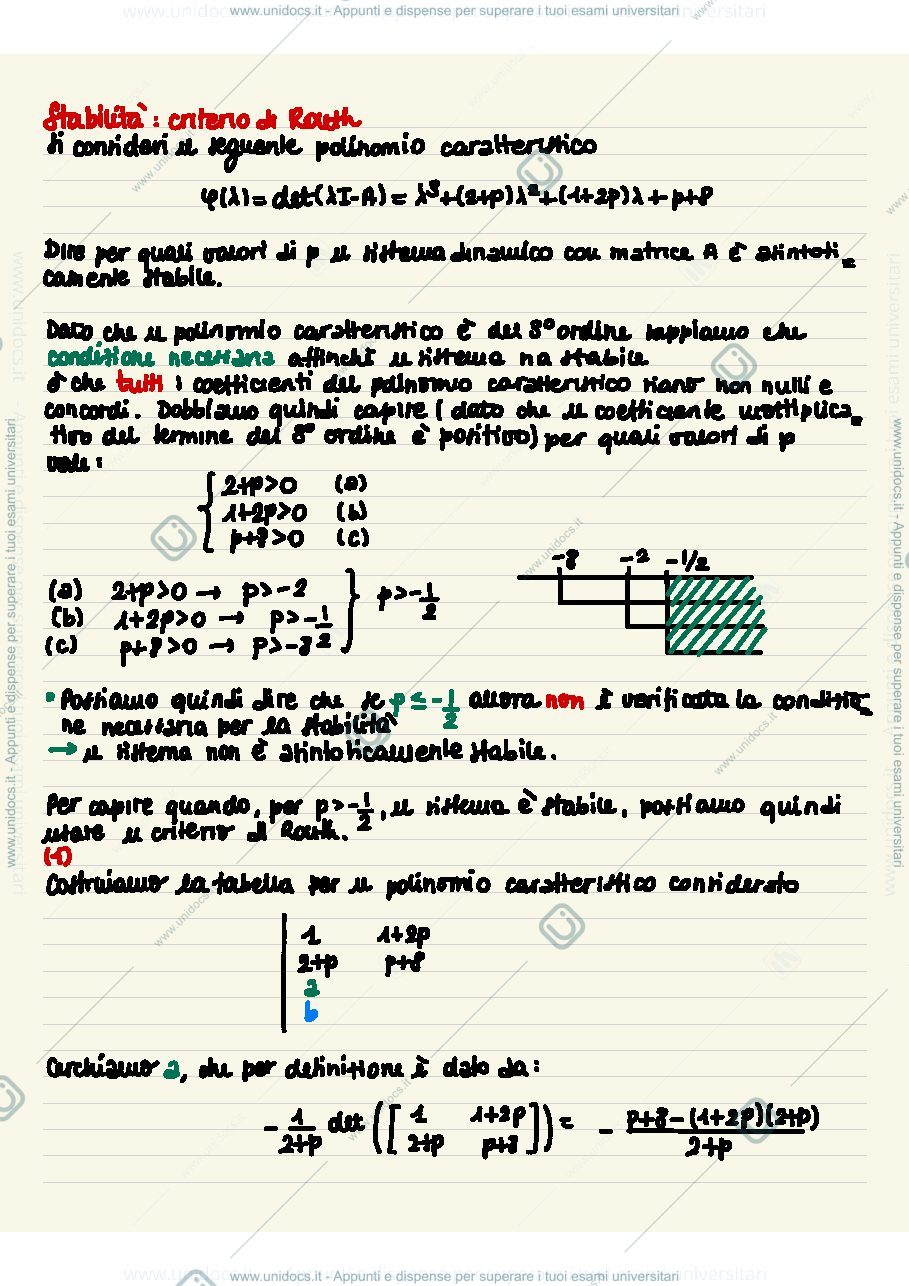 www.unidocs.it - Appunti e dispense per superare i tuoi esami universitari
Stabilità: criterio di Routh
Si consideri il seguente polinomio caratteristico
φ(λ) = det(λI-A) = λ³+(2+p)λ²+(1+2p)λ+p+8
Dire per quali valori di p il sistema dinamico con matrice A è asintoti
camente stabile.
Dato che il polinomio caratteristico è del 3° ordine sappiamo che
condizione necessaria affinché il sistema sia stabile
è che tutti i coefficienti del polinomio caratteristico siano non nulli e
concordi. Dobbiamo quindi capire (dato che il coefficiente moltiplica
tivo del termine del 3° ordine è positivo) per quali valori di p
vale:
2+p>0 (a)
1+2p>0 (b)
p+8>0 (c)
-8 -2 -1/2
(a) 2+p>0 → p>-2
(b) 1+2p>0 → p>-1/2
(c) p+8>0 → p>-8
p>-1/2
• Possiamo quindi dire che se p ≤ -1/2 allora non è verificata la condizio
ne necessaria per la stabilità
→ il sistema non è asintoticamente stabile.
Per capire quando, per p>-1/2, il sistema è stabile, possiamo quindi
usare il criterio di Routh.
(1)
Costruiamo la tabella per il polinomio caratteristico considerato
1 1+2p
2+p p+8
a
b
Cerchiamo a, che per definizione è dato da:
- 1/(2+p) det([1 1+2p
2+p p+8]) = - (p+8-(1+2p)(2+p))/(2+p)
www.unidocs.it - Appunti e dispense per superare i tuoi esami universitari